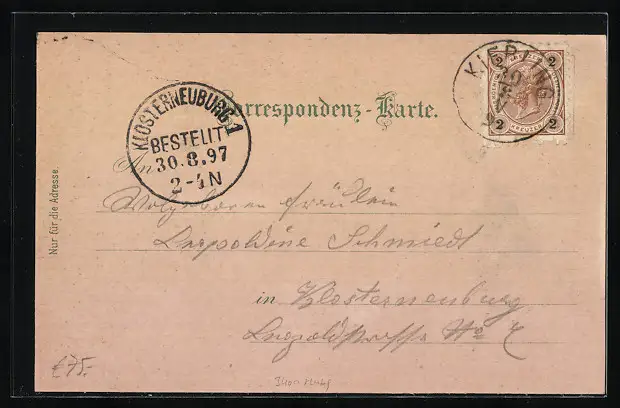 Correspondenz-Karte.
KLOSTERNEUBURG 1
BESTELLT
30.8.97
2-4 N
KIERLING
30
2 2
KREUZER
2 2
An
Wolgeboren Fräulein
Leopoldine Schmiedt
in Klosterneuburg
Leopoldstrasse No 7
Nur für die Adresse.
€75.-